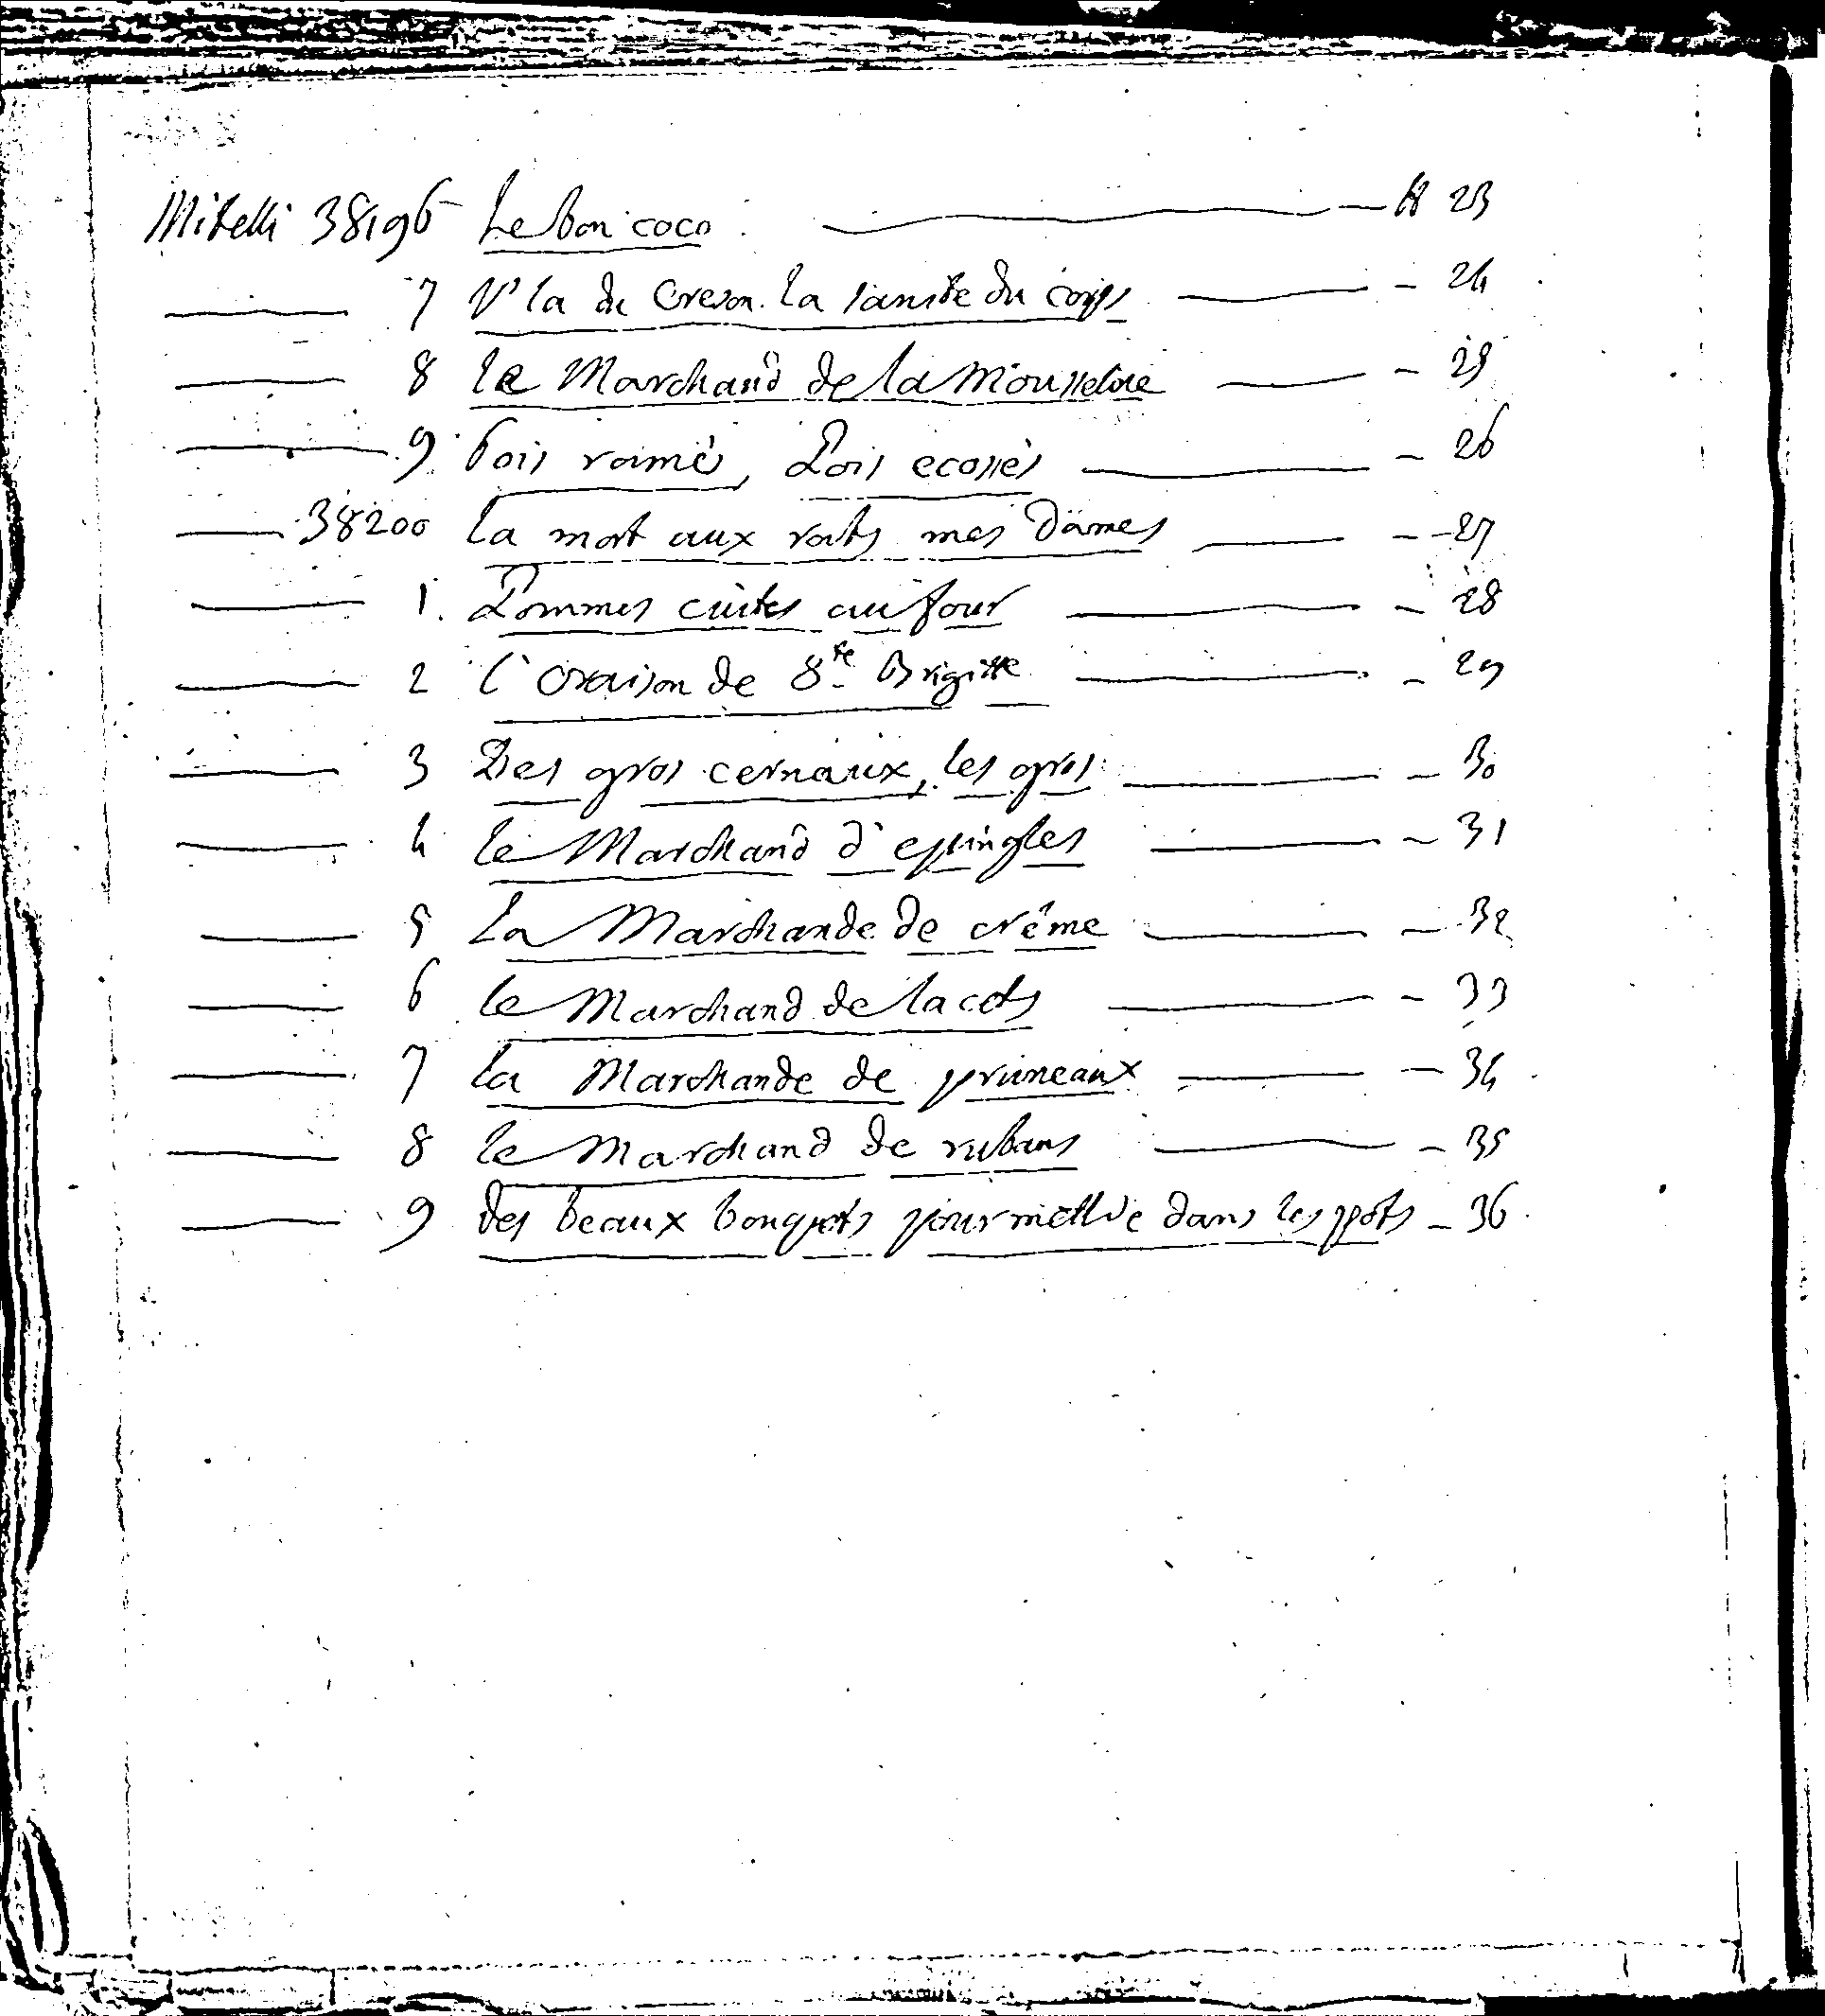 Mitelli 38196 Le bon coco. N 23
7 V'la du Creson. la santée du corps - 24
8 le Marchand de la Mousseline - 25
9 bois ramés, Pois ecossés - 26
38200 La mort aux rats mes Dames - 27
1. Pommes cuites au four - 28
2 l'Oraison de Ste Brigitte - 29
3 Des gros cernaux, les gros - 30
4 le Marchand d'epingles - 31
5 La Marchande de crême - 32
6 le Marchand de lacets - 33
7 la Marchande de pruneaux - 34
8 le Marchand de rubans - 35
9 des beaux bouquets pour mettre dans les pots - 36